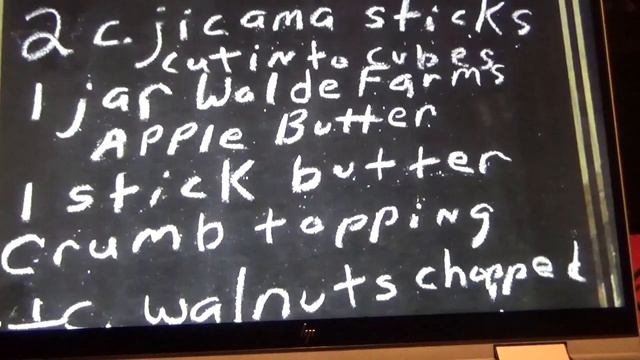 2 c. jicama sticks
cut into cubes
1 jar Walde Farms
APPLE Butter
1 stick butter
Crumb topping
1 c. walnuts chopped
hp